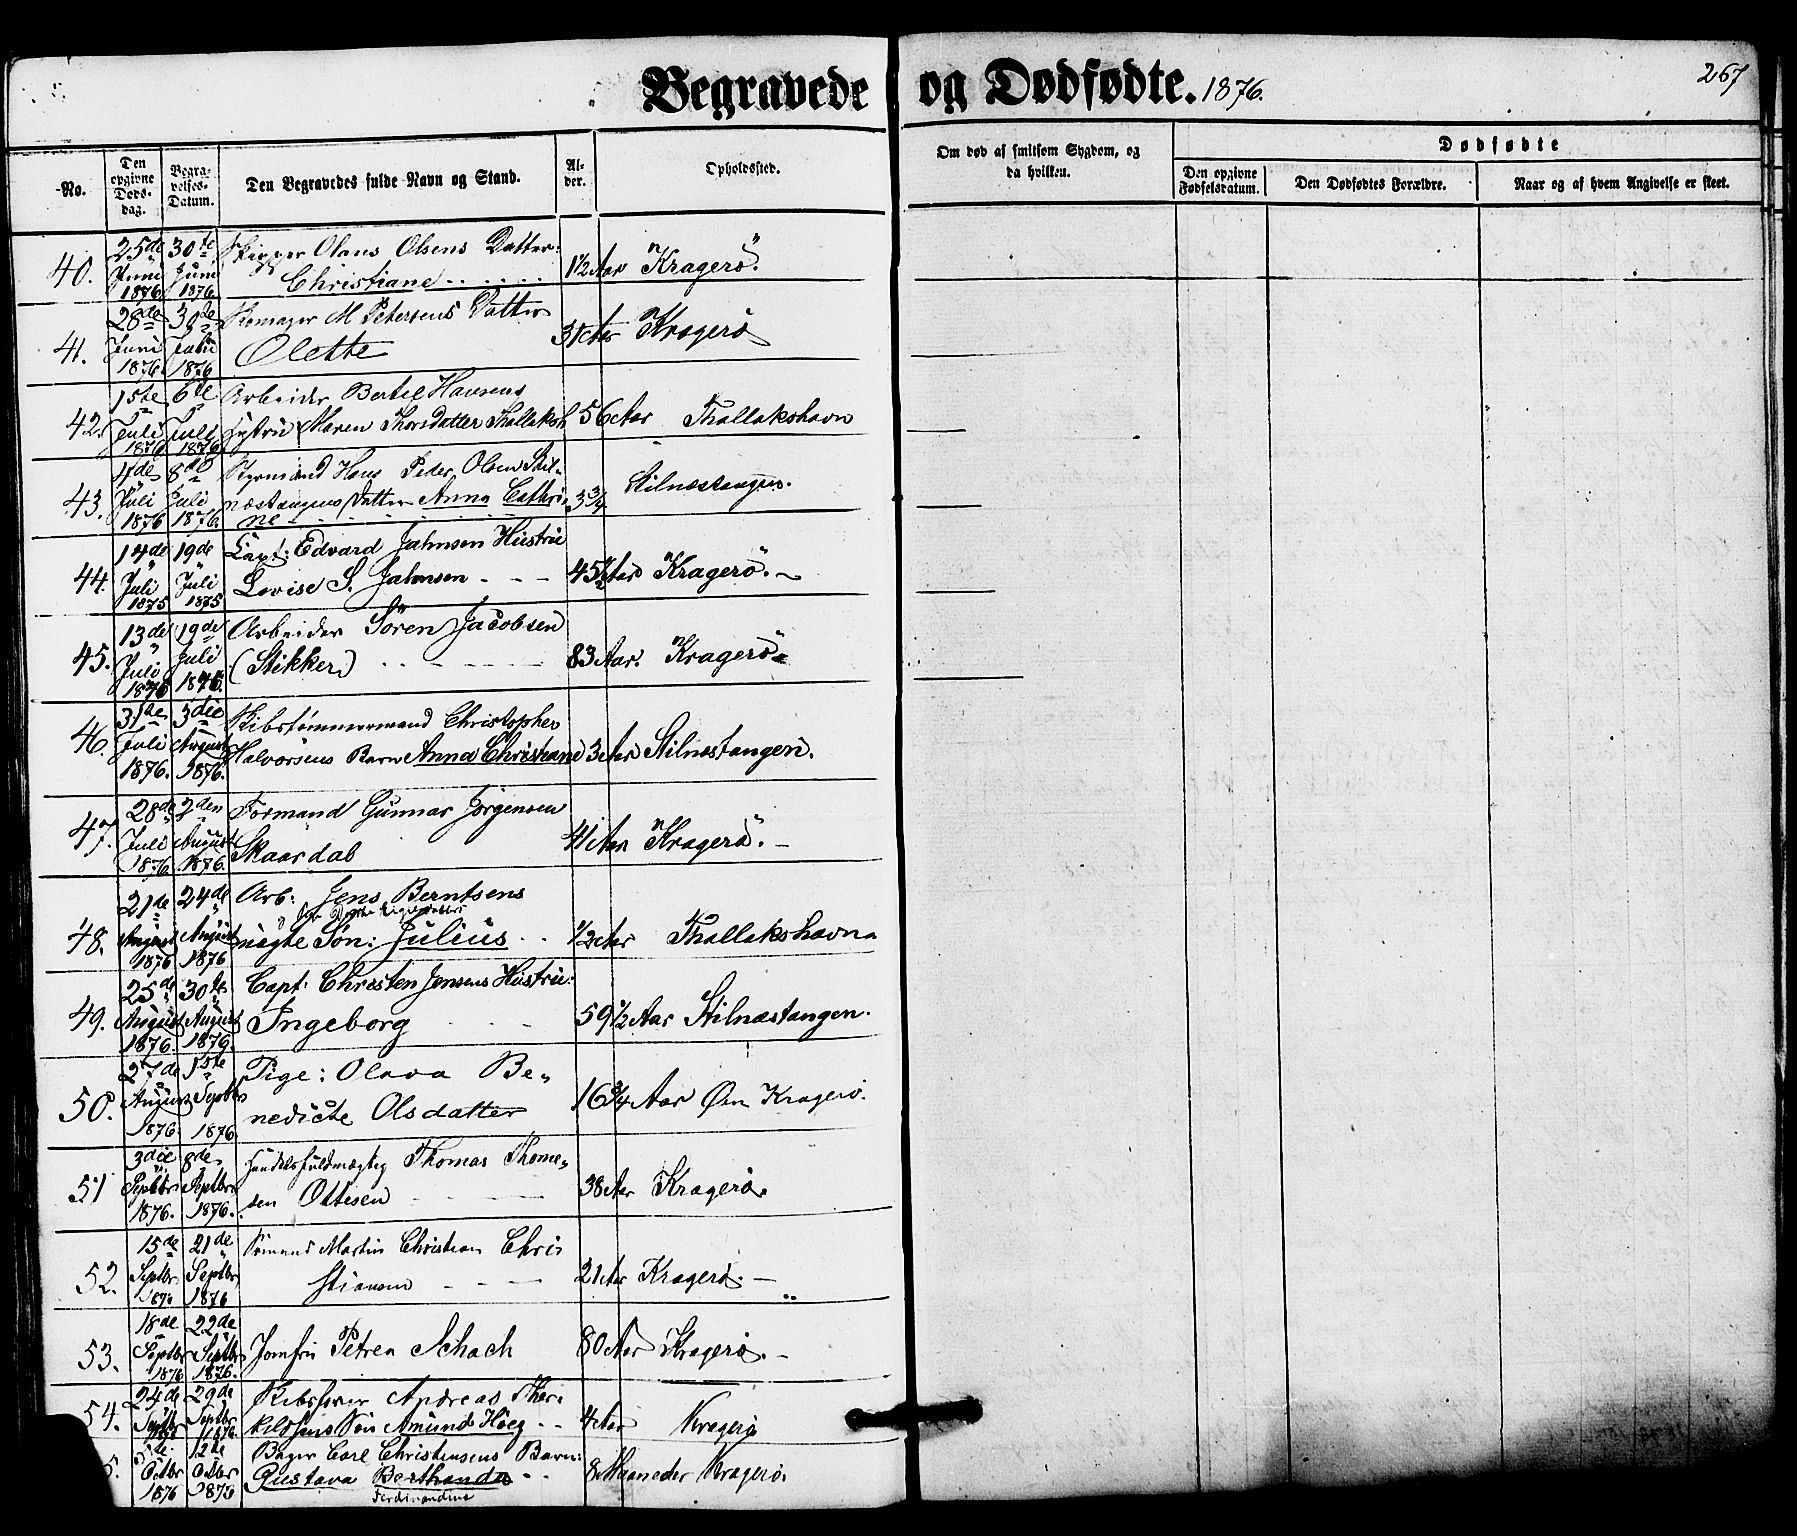 Begravede og Dødfødte. 1876.
267
No.
Den opgivne Døds-dag.
Begra-velses-Datum.
Den Begravedes fulde Navn og Stand.
Al-der.
Opholdssted.
Om død af smitsom Sygdom, og da hvilken.
Dødfødte
Den opgivne Fødselsdatum.
Den Dødfødtes Forældre.
Naar og af hvem Angivelse er skeet.
40. 25de Juni 1876 30te Juni 1876. Skipper Olaus Olsens Datter:
Christiane 1 1/2 Aar Kragerö.
41. 28de Juni 1876. 30te 1876 M Petersens Datter
Olette Aar Kragerö
42. 1ste Juli 1876 6te Juli 1876. Arbeider Bertel Hansens
Hustru Maren Thorsdatter 56 Aar Thallakshavn
43. 4de Juli 1876 8de Juli 1876. Styrmand Hans Peder Olsen Stil-
næstangens Datter Anna Cathri-
ne 3 3/4 Stilnæstangen.
44. 14de Juli 1875 19de Juli 1875 Capt: Edvard Jahnsen Hustrue
Lovise S. Jahnsen 45 1/2 Aar Kragerö.
45. 13de Juli 1876 19de Juli 1876. Arbeider Sören Jacobsen
(Stikker) 83 Aar. Kragerö
46. 31te Juli 1876. 3die August 1876. Ribstömmermand Christopher
Halvorsens Barn Anna Christiane 3 Aar Stilnæstangen.
47. 28de Juli 1876. 2den August 1876. Formand Gunnar Jörgensen
Skaardab 41 Aar Kragerö.
48. 21de August 1876 24de August 1876 Arb: Jens Berntsens
ægte Sön: Julius 1/2 Aar Thallakshavn
49. 25de August 1876. 30te August 1876. Capt: Christen Jensens Hustrue:
Ingeborg 59 1/2 Aar Stilnæstangen.
50. 27de August 1876. 1ste Septbr 1876. Pige: Olava Be-
nedicte Olsdatter 16 3/4 Aar Øen Kragerö.
51 3die Septbr 1876. 8de Septbr 1876. Handelsfuldmægtig Thomas Thom-
sen Ottesen 38 Aar Kragerö.
52. 15de Septbr 1876 21de Septbr 1876 Sömand Martin Christian Chri
stiansen 21 Aar Kragerö.
53. 18de Septbr 1876 22de Septbr 1876. Jomfru Petrea Schach 80 Aar Kragerö.
54. 24de Septbr 29de Septbr 1876. Andreas Ther-
kelsens Sön Amund Höeg 4 Aar Kragerö
5. 5te Octbr 1876 12te Octbr 1876 Bager Carl Christensens Barn:
Gustava Berthande 8 Maaneder Kragerö.
Ferdinandine